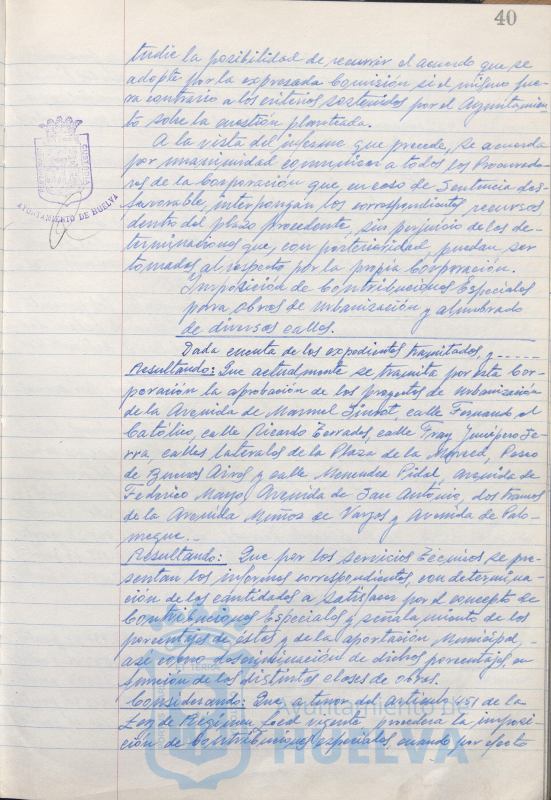 40
tudie la posibilidad de recurrir el acuerdo que se
adopte por la expresada Comisión si el mismo fue-
ra contrario a los criterios sostenidos por el Ayuntamien-
to sobre la cuestión planteada.
A la vista del informe que precede, se acuerda
por unanimidad comunicar a todos los Procurado-
res de la Corporación que, en caso de Sentencia des-
favorable, interpongan los correspondientes recursos
dentro del plazo procedente, sin perjuicio de las de-
terminaciones que, con posterioridad, puedan ser
tomadas al respecto por la propia Corporación.
Imposición de Contribuciones Especiales
para obras de urbanización y alumbrado
de diversas calles.
Dada cuenta de los expedientes tramitados, y -----
Resultando: Que actualmente se tramita por esta Cor-
poración la aprobación de los proyectos de urbanización
de la Avenida de Manuel Siurot, calle Fernando el
Católico, calle Ricardo Terrades, calle Fray Junípero Se-
rra, calles laterales de la Plaza de la Merced, Paseo
de Buenos Aires y calle Menendez Pidal, avenida de
Federico Mayo, Avenida de San Antonio, dos tramos
de la Avenida Muñoz de Vargas y Avenida de Palo-
meque.-
Resultando: Que por los Servicios Técnicos se pre-
sentan los informes correspondientes, con determina-
ción de las cantidades a satisfacer por el concepto de
Contribuciones Especiales y señalamiento de los
porcentajes de éstas y de la aportación Municipal,
así como discriminación de dichos porcentajes, en
función de las distintas clases de obras.
Considerando: Que, a tenor del artículo 451 de la
Ley de Régimen Local vigente procederá la imposi-
ción de Contribuciones especiales, cuando por efecto
AYUNTAMIENTO DE HUELVA
Ayuntamiento de
HUELVA